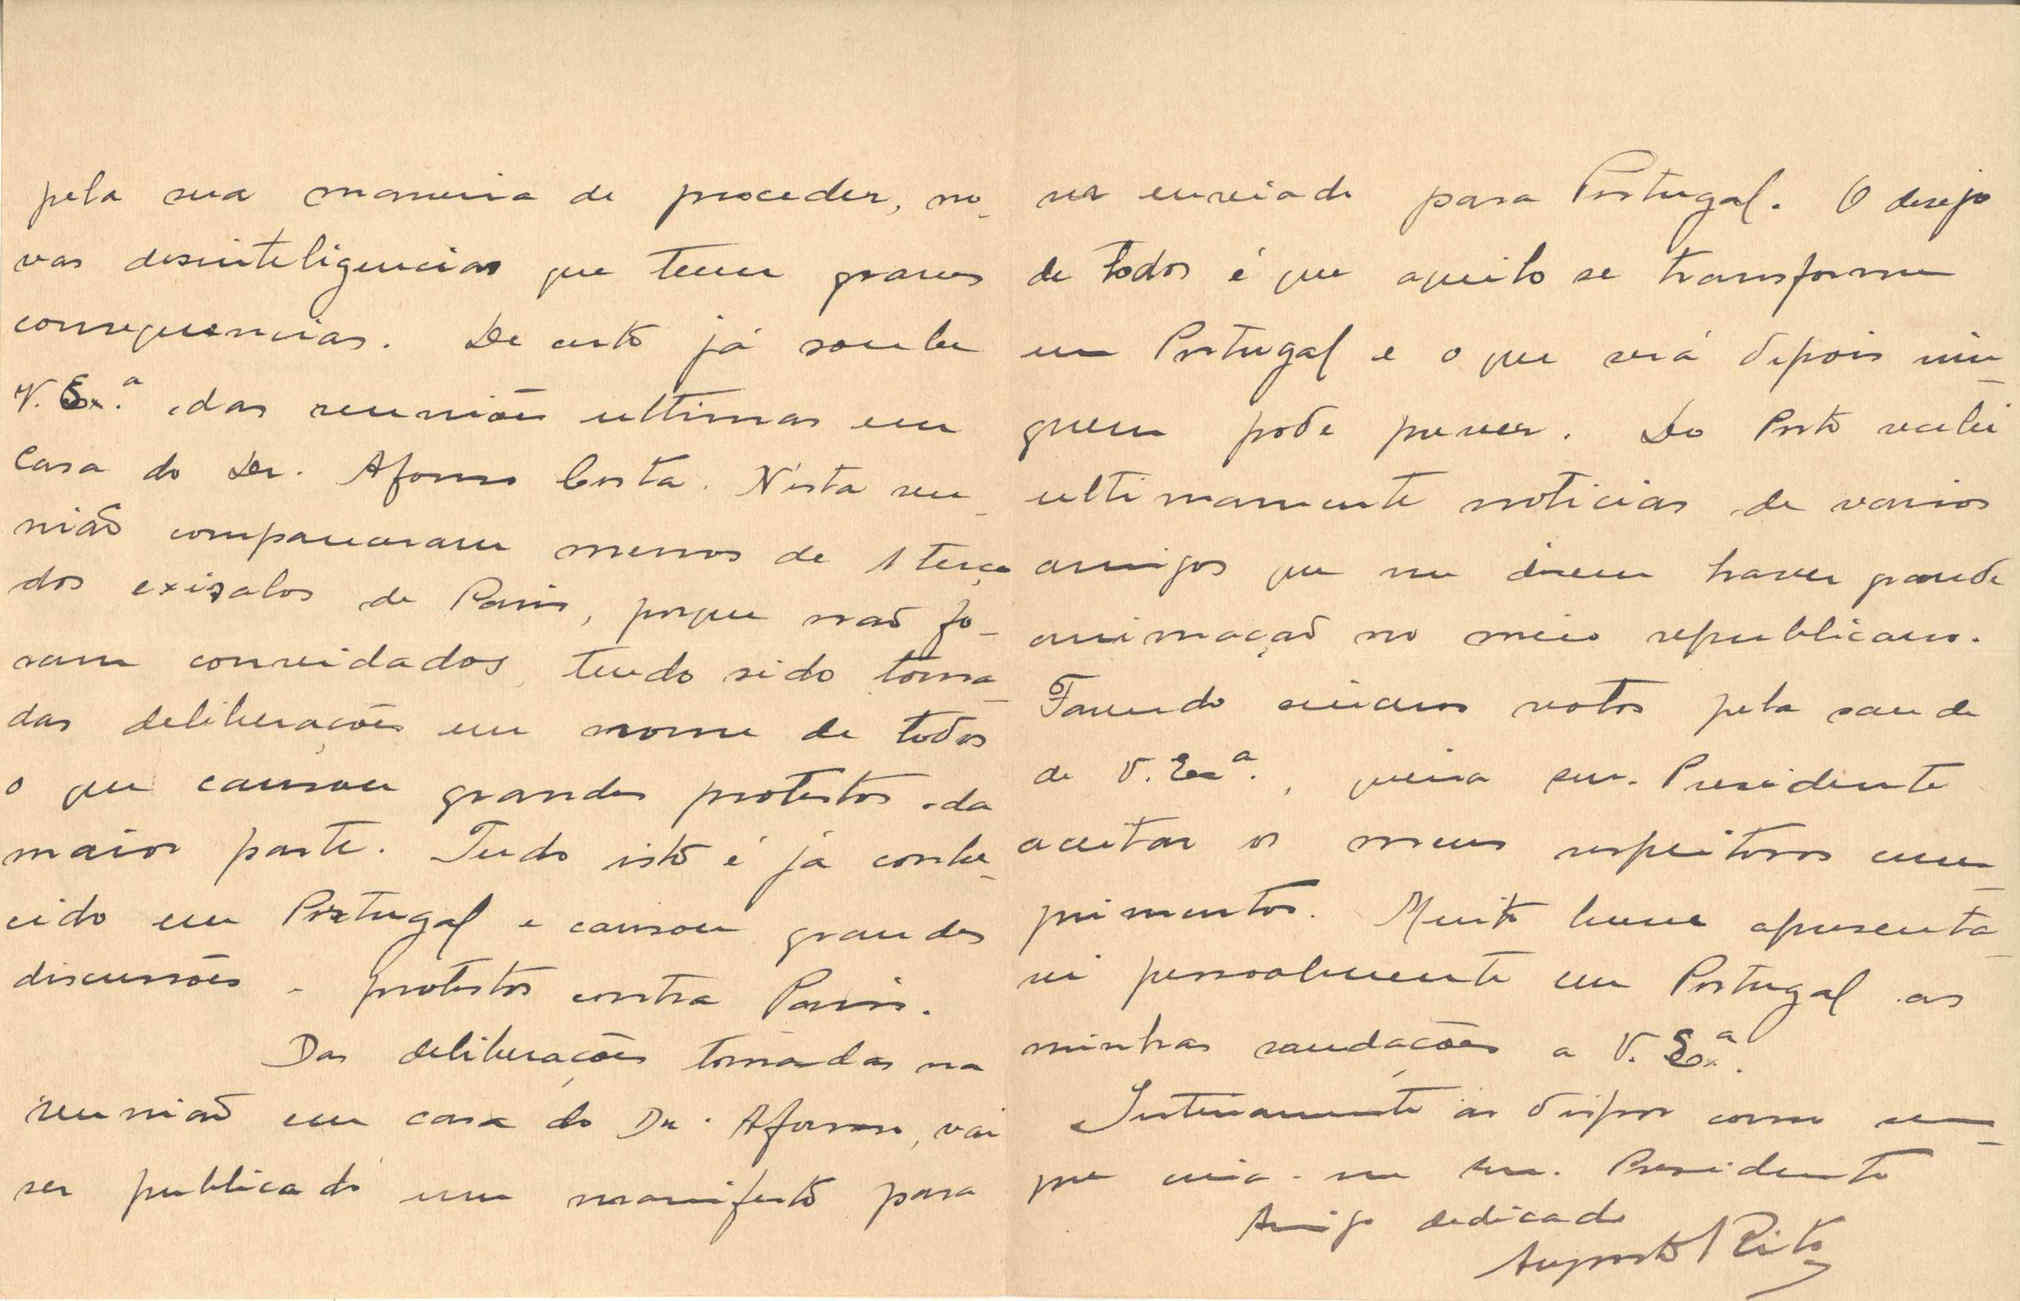 pela sua maneira de proceder, no-
vas desinteligencias que teem graves
consequencias. De certo já soube
V. Ex.ª das reuniões ultimas em
casa do Dr. Afonso Costa. N'esta reu-
nião compareceram menos de 1 terço
dos exizalos de Paris, porque não fo-
ram convidados, tendo sido toma-
das deliberações em nome de todos
o que causou grandes protestos da
maior parte. Tudo isto é já conhe-
cido em Portugal e causou grandes
discussões e protestos contra Paris.
Das deliberações tomadas na
reunião em casa do Dr. Afonso, vai
ser publicado um manifesto para
ser enviado para Portugal. O desejo
de todos é que aquilo se transforme
em Portugal e o que será depois nin-
guem pode prever. Do Porto recebi
ultimamente noticias de varios
amigos que me dizem haver grande
animação no meio republicano.
Fazendo sinceros votos pela saude
de V. Exª., queira snr. Presidente
aceitar os meus respeitosos cum-
primentos. Muito breve apresenta-
rei pessoalmente em Portugal as
minhas saudações a V. Exª.
Inteiramente ao dispor como sem-
pre creia-me snr. Presidente
Amigo dedicado
Augusto Rito